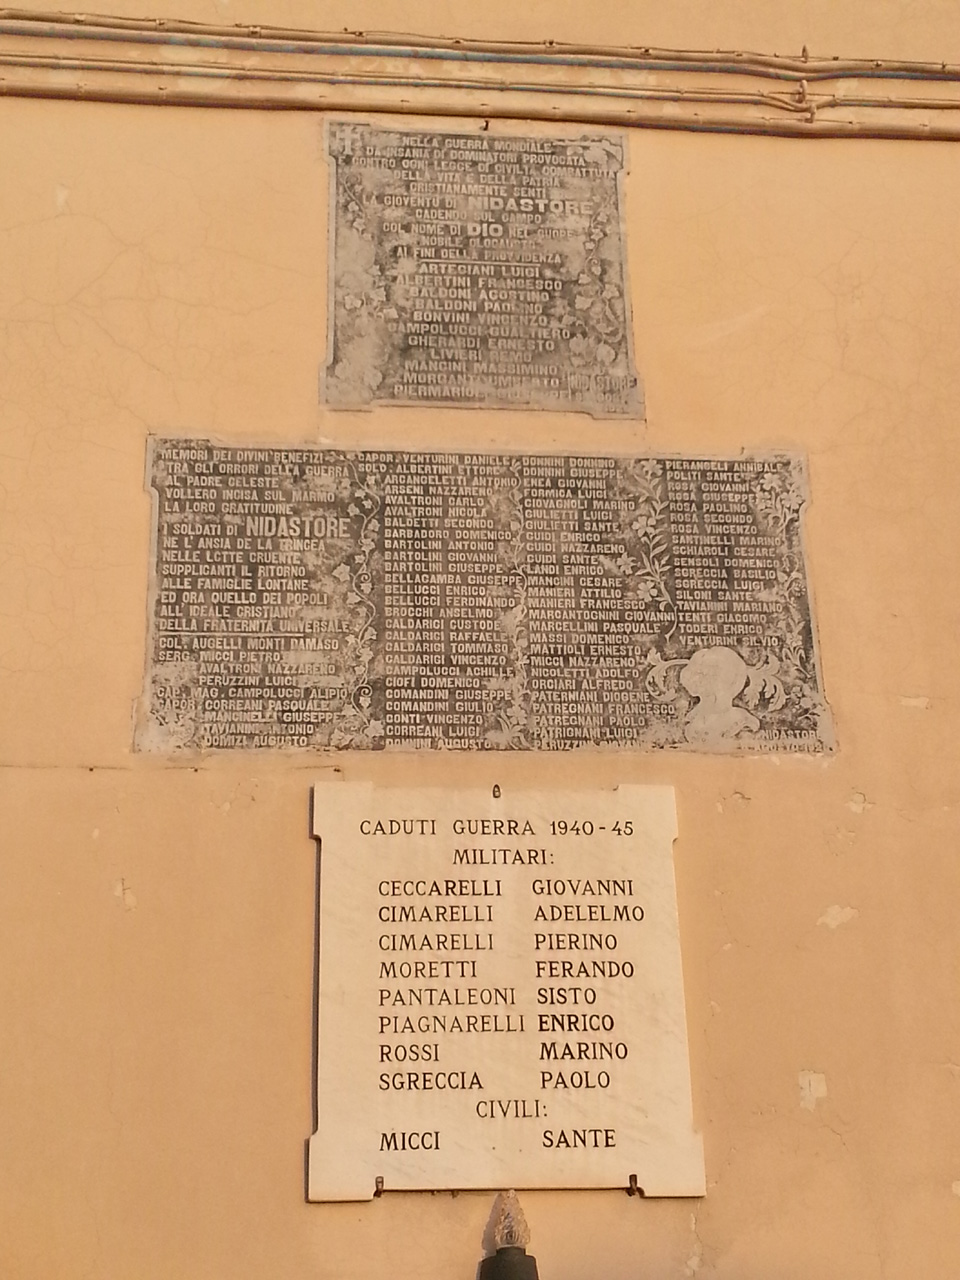 NELLA GUERRA MONDIALE
DA INSANIA DI DOMINATORI PROVOCATA
CONTRO OGNI LEGGE DI CIVILTÀ COMBATTUTA
DELLA VITA E DELLA PATRIA
CRISTIANAMENTE SENTÌ
LA GIOVENTÙ DI NIDASTORE
CADENDO SUL CAMPO
COL NOME DI DIO NEL CUORE
NOBILE OLOCAUSTO
AI FINI DELLA PROVVIDENZA
ARTEGIANI LUIGI
ALBERTINI FRANCESCO
BALDONI AGOSTINO
BALDONI PAOLINO
BONVINI VINCENZO
CAMPOLUCCI GUALTIERO
GHERARDI ERNESTO
LIVIERI REMO
MANCINI MASSIMINO
MORGANTI UMBERTO
PIERMARIOLI GIUSEPPE
NIDASTORE
MEMORI DEI DIVINI BENEFIZI
TRA GLI ORRORI DELLA GUERRA
AL PADRE CELESTE
VOLLERO INCISA SUL MARMO
LA LORO GRATITUDINE
I SOLDATI DI NIDASTORE
NE L'ANSIA DE LA TRINCEA
NELLE LOTTE CRUENTE
SUPPLICANTI IL RITORNO
ALLE FAMIGLIE LONTANE
ED ORA QUELLO DEI POPOLI
ALL'IDEALE CRISTIANO
DELLA FRATERNITÀ UNIVERSALE
COL. AUGELLI MONTI DAMASO
SERG. MICCI PIETRO
AVALTRONI NAZZARENO
PERUZZINI LUIGI
CAP. MAG. CAMPOLUCCI ALIPIO
CAPOR. CORREANI PASQUALE
MANCINELLI GIUSEPPE
TAVIANINI ANTONIO
DOMIZI AUGUSTO
CAPOR. VENTURINI DANIELE
SOLD. ALBERTINI ETTORE
ARCANGELETTI ANTONIO
ARSENI NAZZARENO
AVALTRONI CARLO
AVALTRONI NICOLA
BALDETTI SECONDO
BARBADORO DOMENICO
BARTOLINI ANTONIO
BARTOLINI GIOVANNI
BARTOLINI GIUSEPPE
BELLAGAMBA GIUSEPPE
BELLUCCI ENRICO
BELLUCCI FERDINANDO
BROCCHI ANSELMO
CALDARIGI CURZIO
CALDARIGI RAFFAELE
CALDARIGI TOMMASO
CALDARIGI VINCENZO
CAMPOLUCCI ACHILLE
GOFI DOMENICO
COMANDINI GIUSEPPE
COMANDINI GIULIO
CONTI VINCENZO
CORREANI LUIGI
DONNINI AUGUSTO
DONNINI DOMENICO
DONNINI GIUSEPPE
ENEA GIOVANNI
FORMICA LUIGI
GIOVAGNOLI MARINO
GIULIETTI LUIGI
GIULIETTI SANTE
GUIDI ENRICO
GUIDI NAZZARENO
GUIDI SANTE
LANDI ENRICO
MANCINI CESARE
MANIERI ATTILIO
MANIERI FRANCESCO
MARCANTOGNINI GIOVANNI
MARCELLINI PASQUALE
MASSI DOMENICO
MATTIOLI ERNESTO
MICCI NAZZARENO
NICOLETTI ADOLFO
ORCIARI ALFREDO
PATERNIANI DIOGENE
PATREGNANI FRANCESCO
PATREGNANI PAOLO
PATRIGNANI LUIGI
PERUZZINI GIOVANNI
PIERANGELI ANNIBALE
POLITI SANTE
ROSA GIOVANNI
ROSA GIUSEPPE
ROSA PAOLINO
ROSSI SECONDO
ROSSI VINCENZO
SANTINELLI MARINO
SCHIAROLI CESARE
SENSOLI DOMENICO
SGRECCIA BASILIO
SGRECCIA LUIGI
SILONI SANTE
TAVIANINI MARIANO
TINTI GIACOMO
TODERI ENRICO
VENTURINI SILVIO
NIDASTORE
CADUTI GUERRA 1940-45
MILITARI:
CECCARELLI GIOVANNI
CIMARELLI ADELELMO
CIMARELLI PIERINO
MORETTI FERANDO
PANTALEONI SISTO
PIAGNARELLI ENRICO
ROSSI MARINO
SGRECCIA PAOLO
CIVILI:
MICCI SANTE